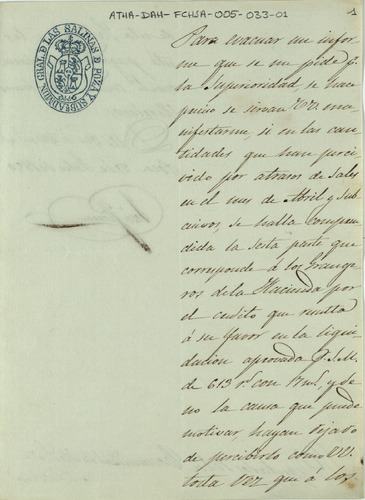 ATHA-DAH-FCHSA-005-033-01
1
SUBADMON. GRAL. DE LAS SALINAS DE POZA Y
Para evacuar un infor
me que se me pide p.r
la Superioridad, se hace
preciso se sirvan VV. ma
nifestarme, si en las can
tidades que han perci
vido por atrasos de Sales
en el mes de Abril y sub
cesivos, se halla compren
dida la sesta parte que
corresponde á los Grange
ros de la Hacienda por
el credito que resulta
á su favor en la liqui
dacion aprovada p. S. M.
de 613 r.s con 17 m.s, y de
no la causa que puede
motivar hayan dejado
de percibirlo como VV.
que á los